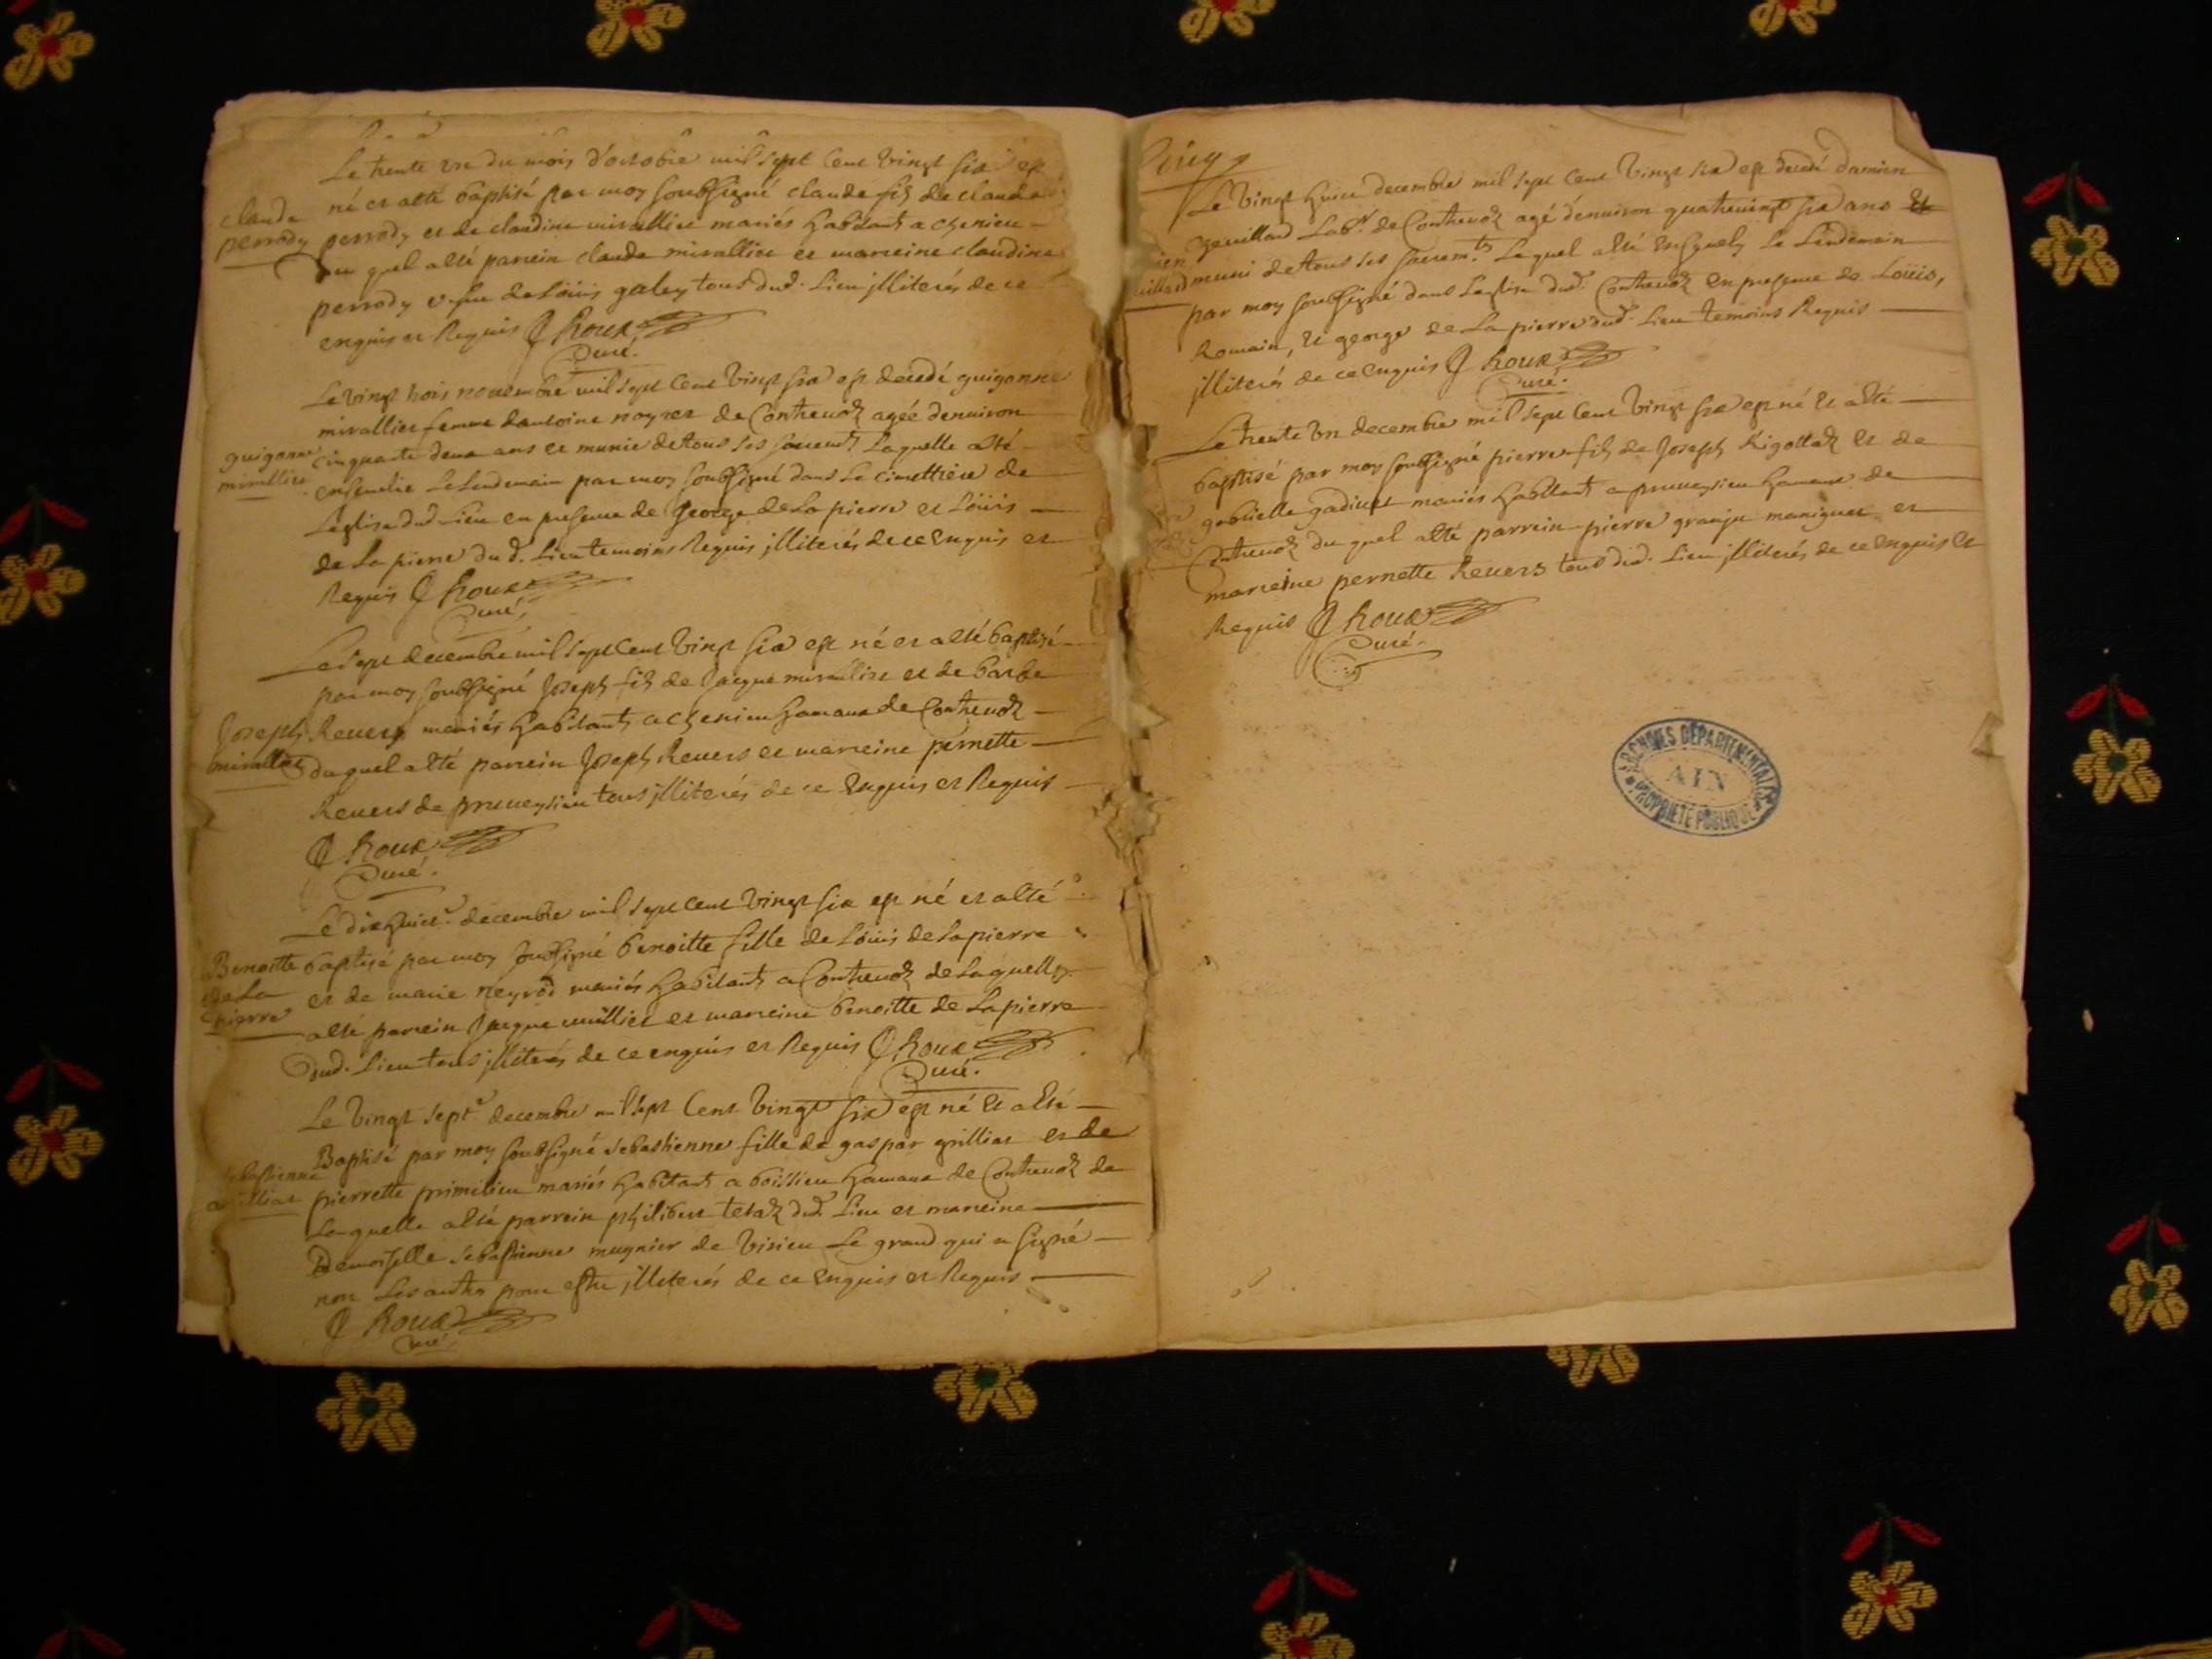 Le trente un du mois d'octobre mil sept cent vingt six est
né et a été baptisé par moy soubsigné claude fils de claude
claude
perrody
perrody et de claudine mirallier mariés habitants a chenieu
du quel a été parrein claude mirallier et marreine claudine
perrody vefue de Loüis galley tous dud. Lieu jlliterés de ce
enquis et Requis J Roux
Curé.
Le vingt trois novembre mil sept cent vingt six est decedé guigonne
mirallier femme d'antoine noyret de Contrevoz agée d'environ
guigonne
mirallier
cinquante deux ans et munie de tous ses sacremts Laquelle a été
ensevelie Le Lendemain par moy soubsigné dans Le cimettiere de
L'eglise dud Lieu en presence de George de La pierre et Loüis
de La pierre du d. Lieu temoins Requis jlliterés de ce enquis et
Requis J Roux
Curé.
Le sept decembre mil sept cent vingt six est né et a été baptisé
par moy soubsigné Joseph fils de Jacque mirallier et de barbe
Joseph
mirallier
Revers mariés habitants a chenieu hameau de Contrevoz
du quel a été parrein Joseph Revers et marreine pernette
Revers de pruveysieu tous jlliterés de ce enquis et Requis
J Roux
Curé.
Le dix huict decembre mil sept cent vingt six est né et a été
Benoitte
de La
pierre
baptisé par moy soubsigné benoitte fille de Loüis de La pierre
et de marie neyrod mariés habitants a Contrevoz de Laquelle
a été parrein Jacque et marreine benoitte de La pierre
dud. Lieu tous jlliterés de ce enquis et Requis J Roux
Curé.
Le vingt sept decembre mil sept cent vingt six est né et a été
Baptisé par moy soubsigné sebastienne fille de gaspar grilliat et de
sebastienne
grilliat
pierrette mariés habitants a boissieu hameau de Contrevoz de
Laquelle a été parrein philibert dud. Lieu et marreine
Demoiselle sebastienne mugnier de virieu Le grand qui a signé
non Les autres pour estre jlliterés de ce enquis et Requis
J Roux
Curé.
Le vingt huict decembre mil sept cent vingt six est decedé damien
Labr. de Contrevoz agé d'environ quatrevingt six ans et
muni de tous ses sacremts. Lequel a été Le Lendemain
par moy soubsigné dans Leglise dud. Contrevoz en presence de Loüis,
Romain, et george de La pierre dud. Lieu temoins Requis
jlliterés de ce enquis J Roux
Curé.
Le trente un decembre mil sept cent vingt six est né et a été
baptisé par moy soubsigné pierre fils de Joseph Rigottaz et de
gabrielle mariés habitants a pruveysieu hameau de
Contrevoz du quel a été parrein pierre maniguet et
marreine pernette Revers tous dud. Lieu jlliterés de ce enquis et
Requis J Roux
Curé.
ARCHIVES DÉPARTEMENTALES
AIN
PROPRIÉTÉ PUBLIQUE